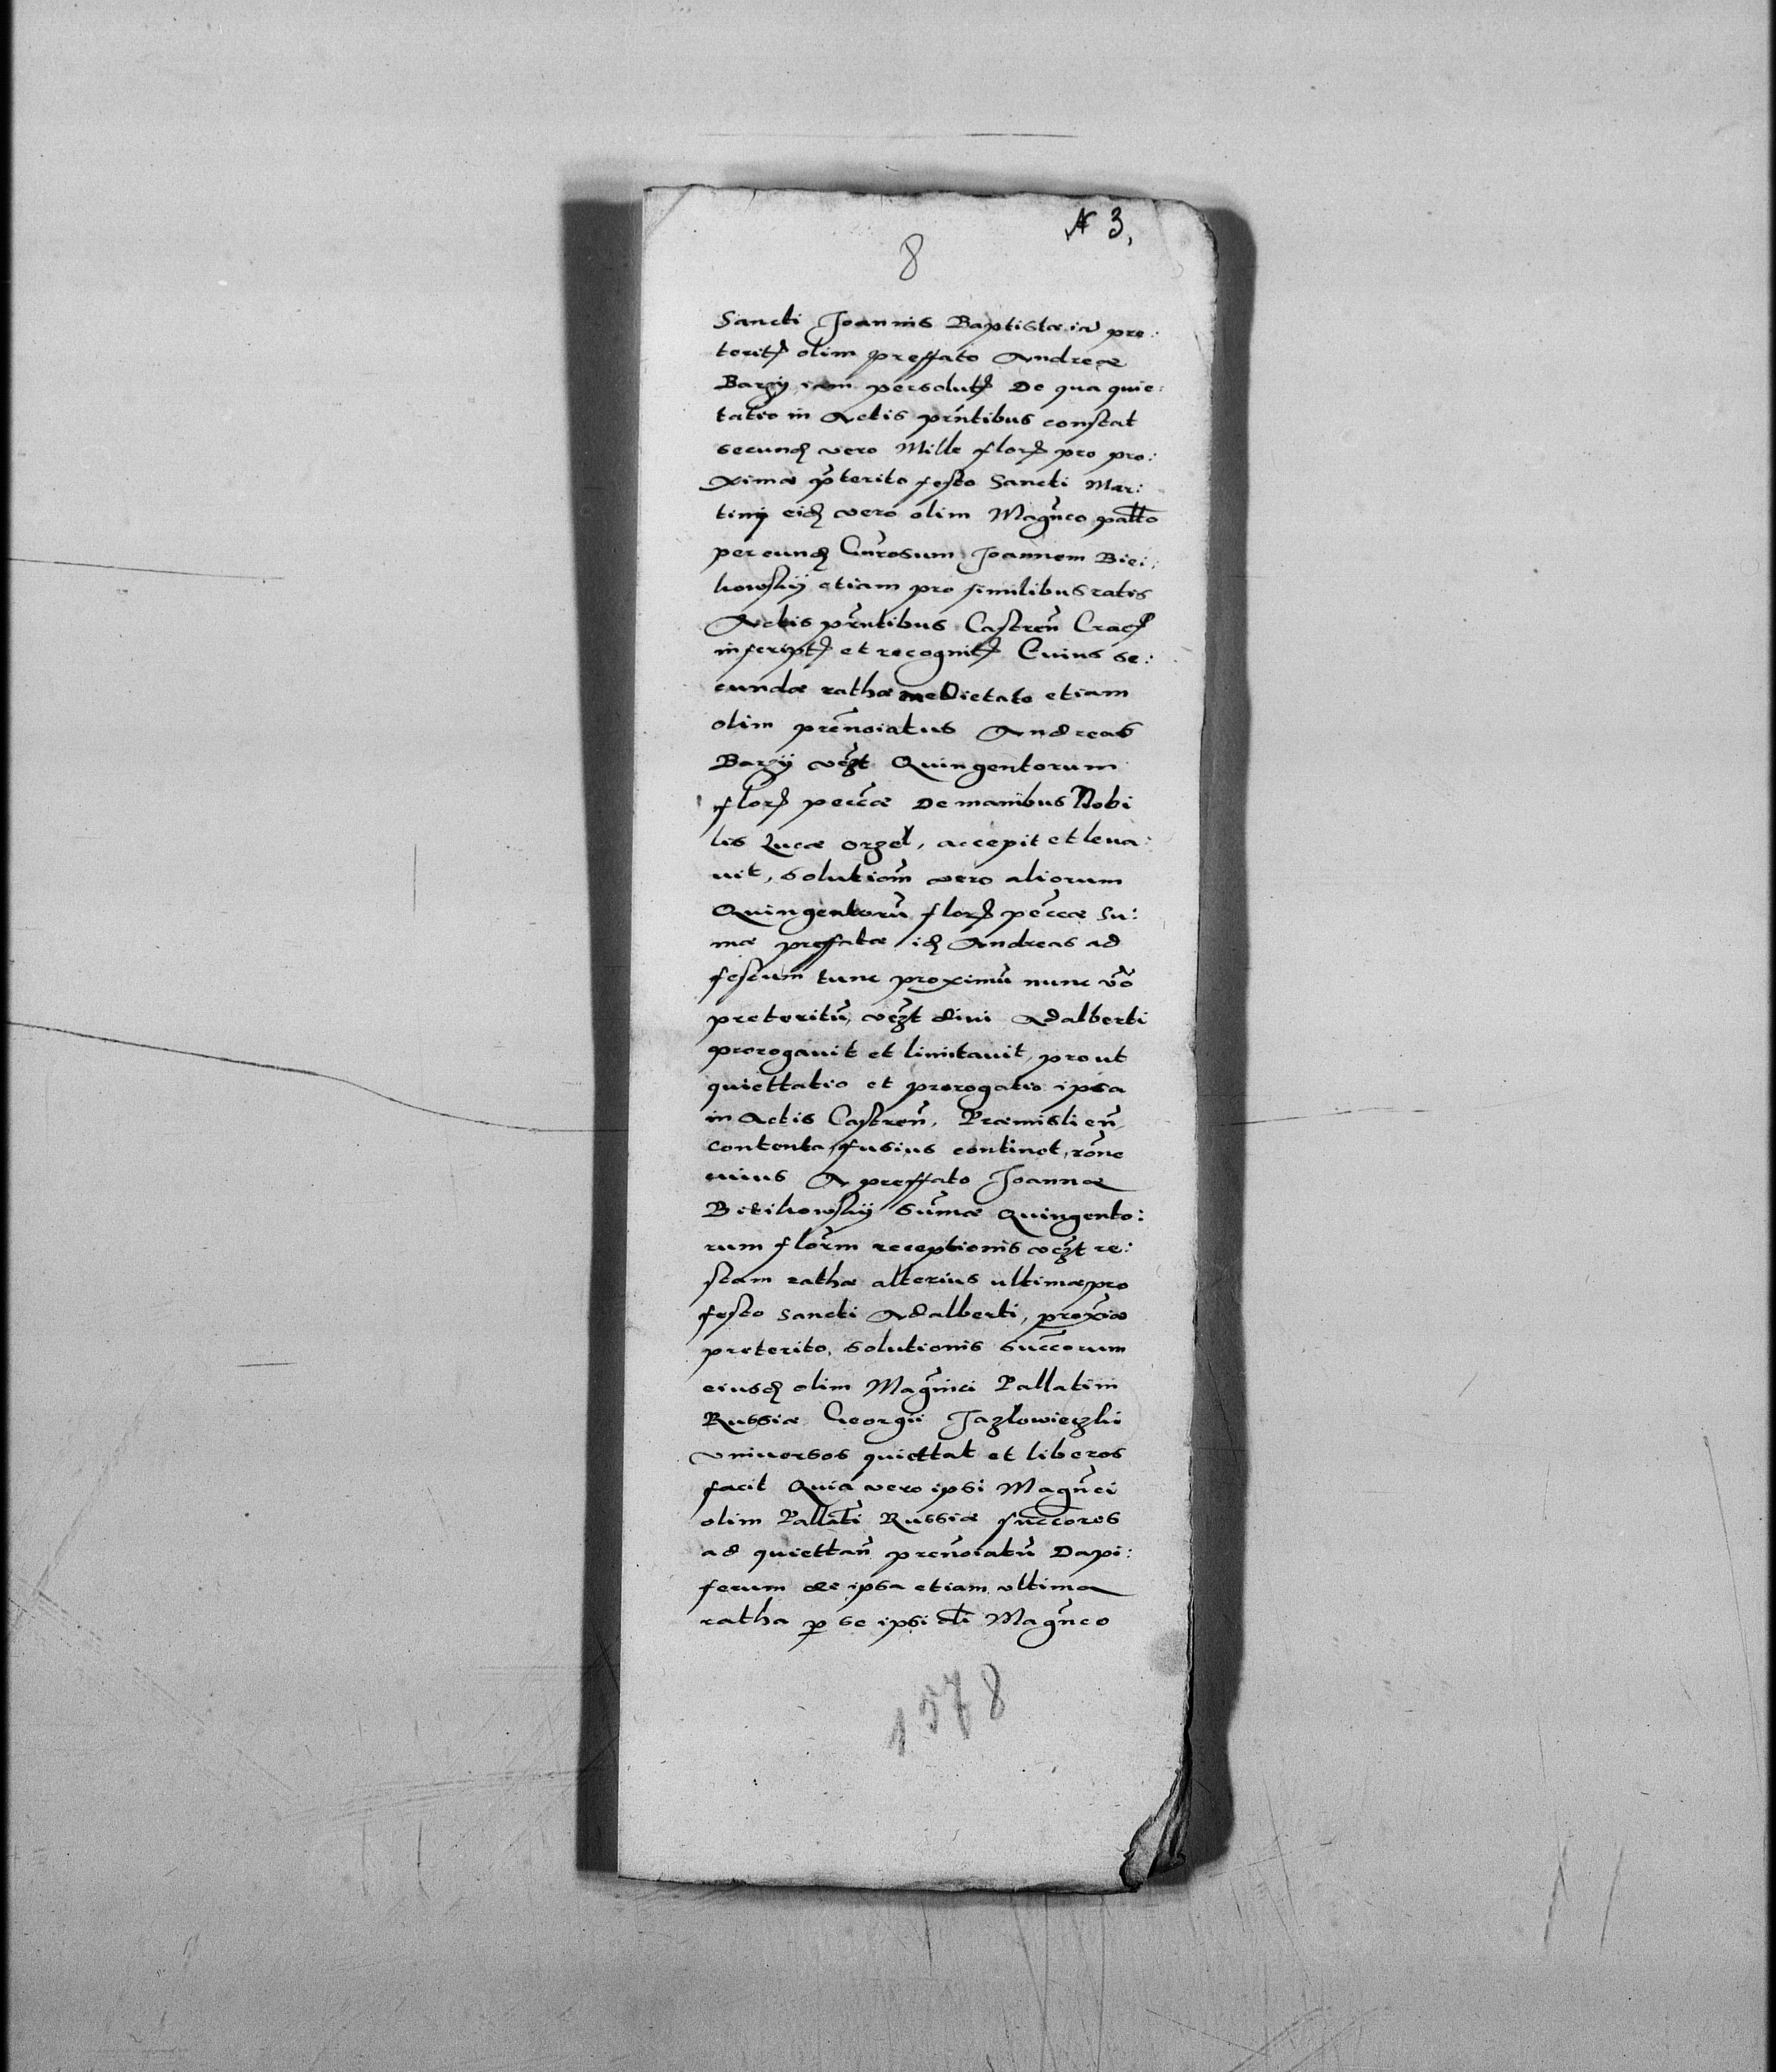 N 3,
8
Sancti Joannis Baptistæ iã pre:
terit̃ olim preffato Andreæ
Barzÿ iam persolut̃ De qua quie:
tatio in Actis prñtibus constat
secund̃ vero Mille flor̃ pro pro:
xime p̃terito festo Sancti Mar:
tinÿ eid̃ vero olim Magñco pallto
per eund̃ Gnrosum Joannem Biei:
kowskÿ etiam pro similibus ratis
Actis prñtibus Castreñ Crac̃
inscript̃ et recognit̃ Cuius se:
cundæ rathæ medietate etiam
olim preñoiatus Andreas
Barzÿ vcz̃t Quingentorum
flor̃ peccæ De manibus Nobi
lis Lucæ Orzel, accepit et leua:
uit, solutiom̃ vero aliorum
Quingentorũ flor̃ peccæ su:
mæ preffatæ id̃ Andreas ad
festum tunc proximũ nunc võ
preteritũ, vcz̃t diui Adalberti
prorogauit et limitauit, prout
quiettatio et prorogatio ipsa
in Actis Castreñ, Præmislieñ,
contenta, fusius continet, rõne
cuius A preffato Joanne
Bieikowskÿ sũmæ Quingento:
rum florm̃ receptionis vcz̃t re:
stam rathæ alterius ultimæ pro
festo sancti Adalberti, proxĩe
preterito, solutionis succ̃orum
eiusd̃ olim Magñici Pallatini
Russiæ Georgii Jazlowieczki
vniuersos quiettat et liberos
facit Quia vero ipsi Magñci
olim Pallati Russiæ succ̃ores
ad quiettañ preñoiatũ Dapi:
ferum de ipsa etiam vltima
ratha p̱ se ipsi dti Magñco
1578